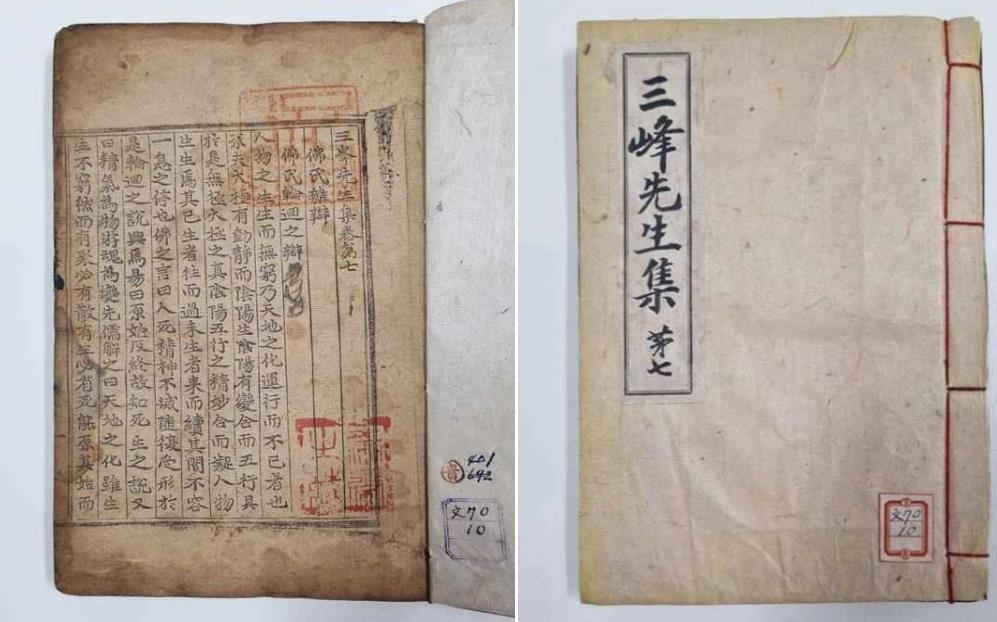 三峯先生集卷第七
佛氏雜辯
佛氏輪迴之辯
人物之生生而無窮乃天地之化運行而不已者也
原夫太極有動靜而陰陽生陰陽有變合而五行具
於是無極太極之真陰陽五行之精妙合而凝人物
生生焉其已生者往而過未生者来而續其間不容
一息之停也佛之言曰人死精神不滅隨復受形於
是輪迴之說興焉易曰原始反終故知死生之說又
曰精氣為物游魂為變先儒解之曰天地之化雖生
生不窮然而有聚必有散有生必有死能原其始而
貴
401
692
文70
10
三峰先生集 茅七
文70
10